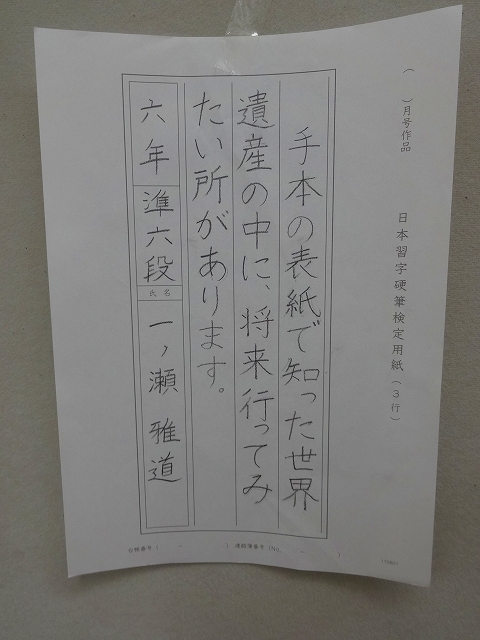 ( )月号作品
日本習字硬筆検定用紙(3行)
手本の表紙で知った世界
遺産の中に、将来行ってみ
たい所があります。
六年
準六段
氏名
一ノ瀬 雅道